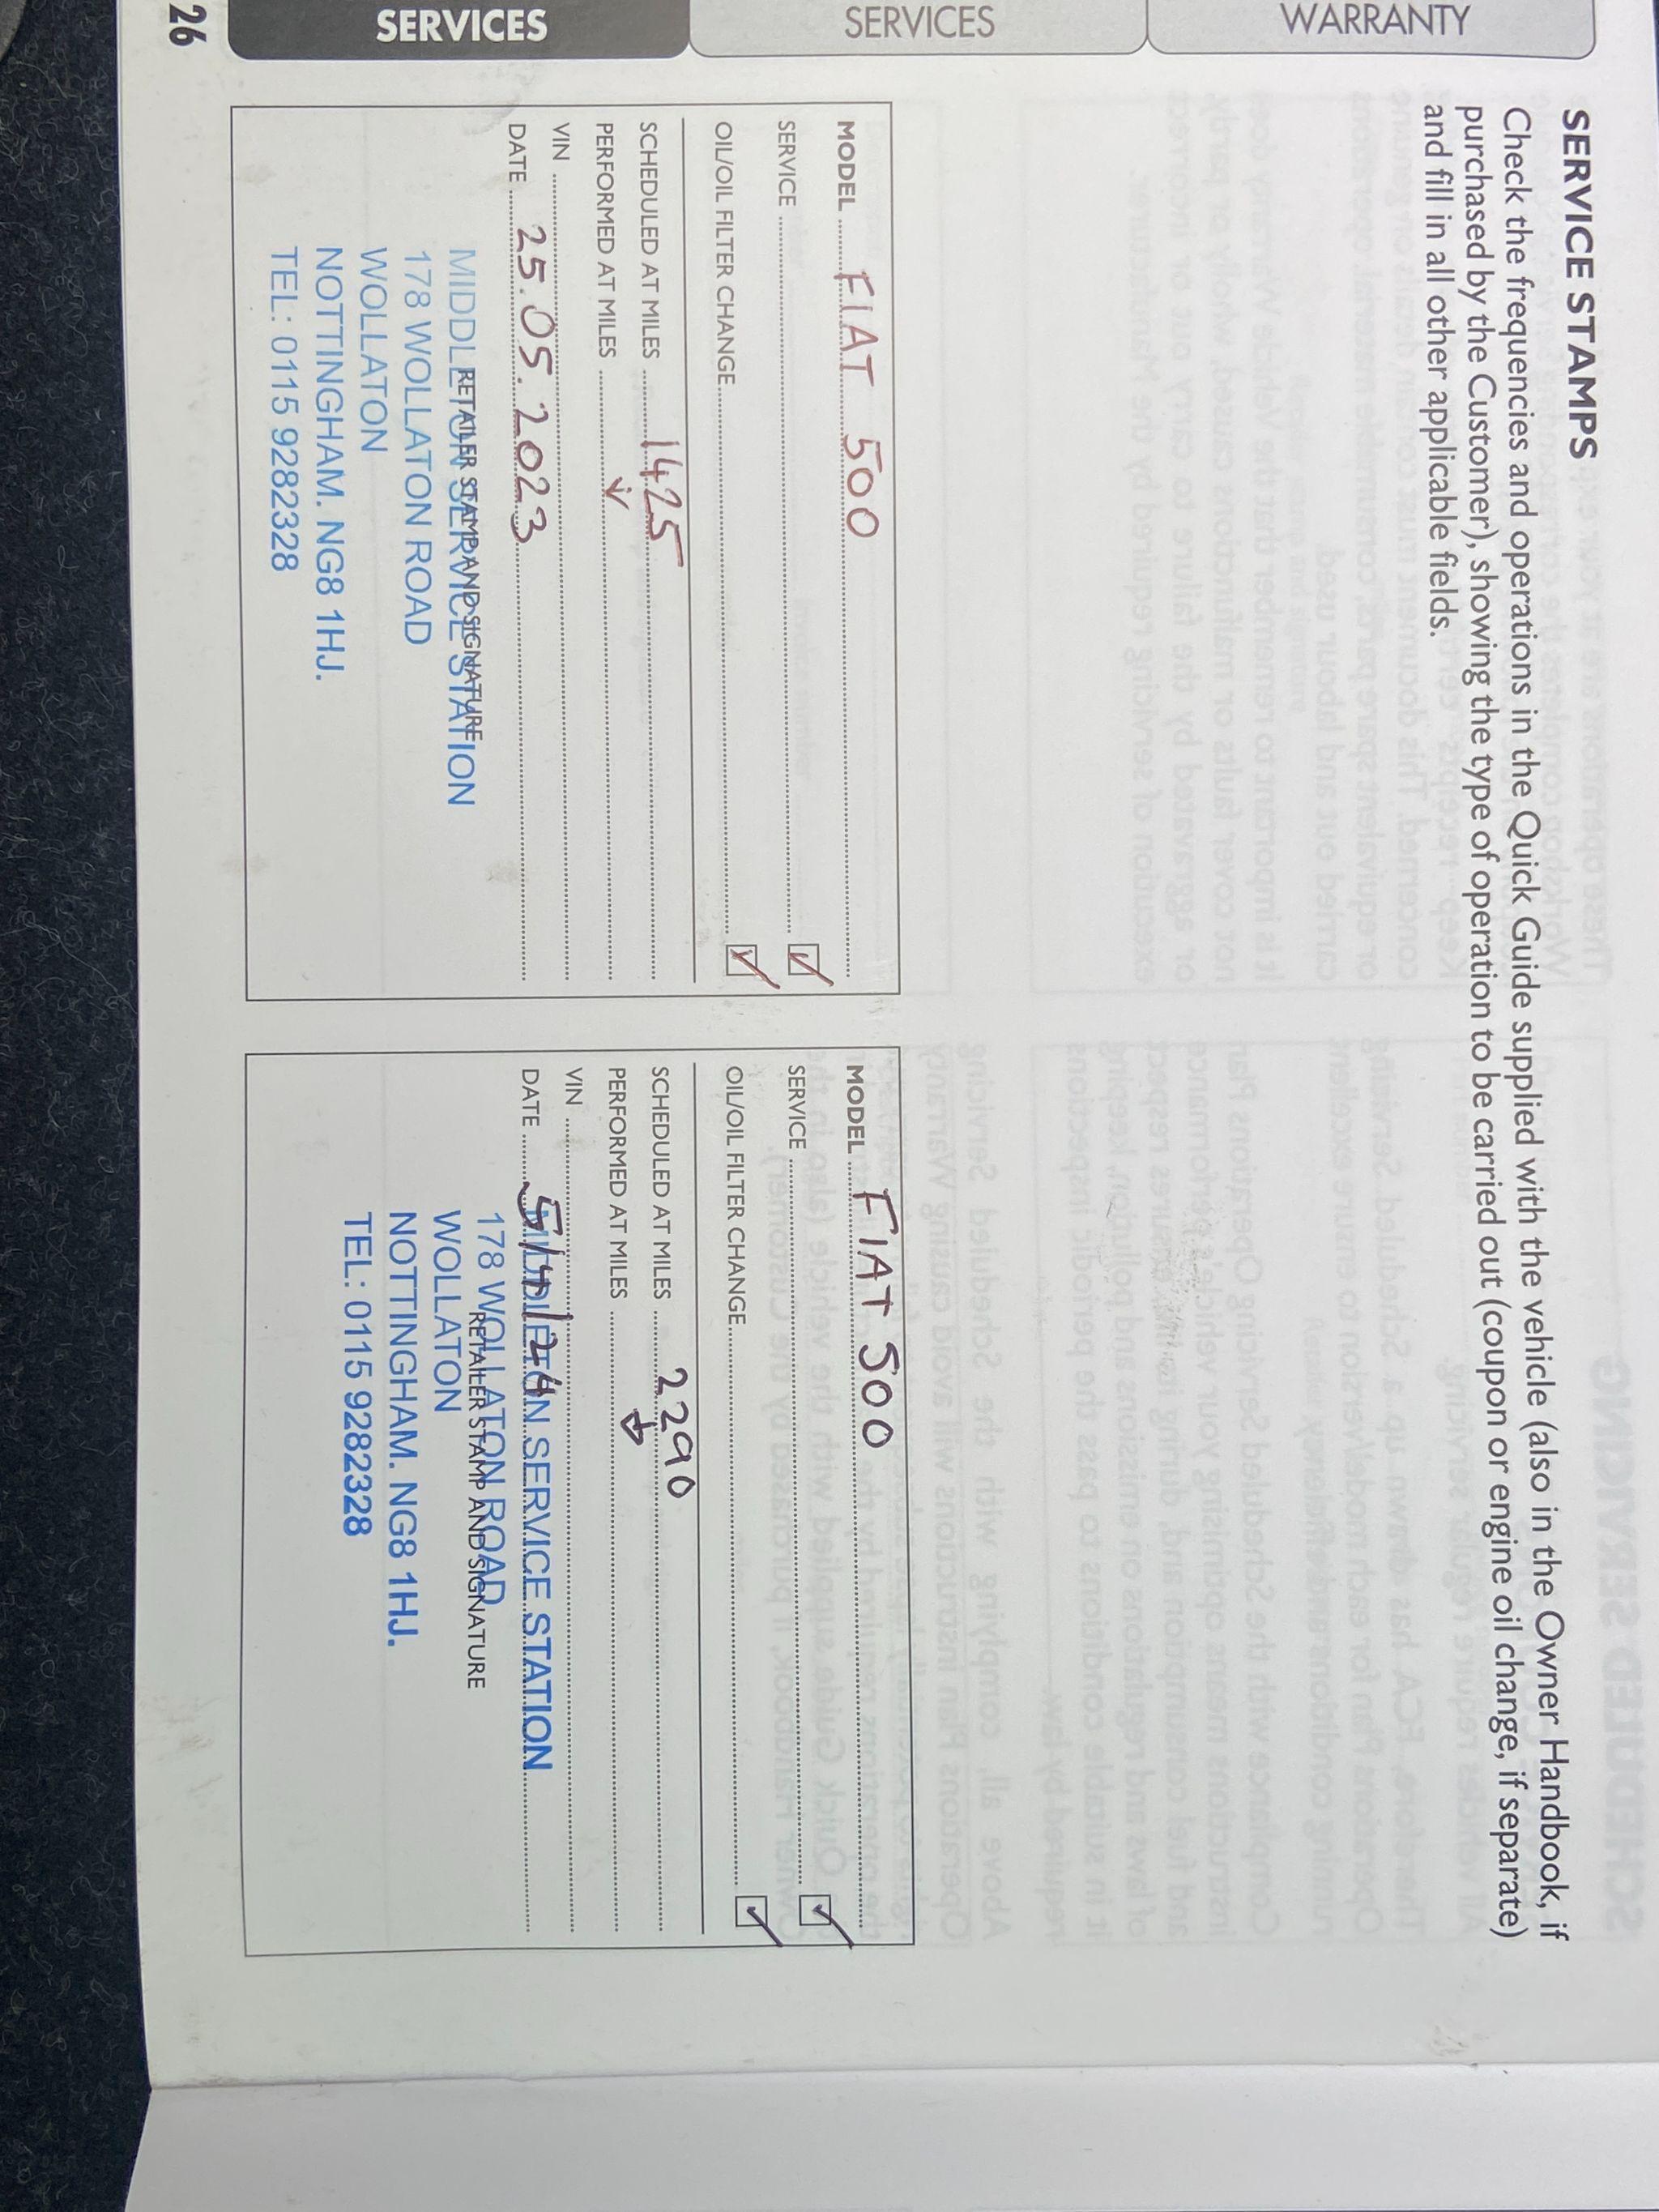 WARRANTY
SERVICES
SERVICES
26
SERVICE STAMPS
Check the frequencies and operations in the Quick Guide supplied with the vehicle (also in the Owner Handbook, if
purchased by the Customer), showing the type of operation to be carried out (coupon or engine oil change, if separate)
and fill in all other applicable fields.
MODEL FIAT 500
SERVICE ✓
OIL/OIL FILTER CHANGE ✓
SCHEDULED AT MILES 1425
PERFORMED AT MILES ↓
VIN
DATE 25.05.2023
RETAILER STAMP AND SIGNATURE
MIDDLETON SERVICE STATION
178 WOLLATON ROAD
WOLLATON
NOTTINGHAM. NG8 1HJ.
TEL: 0115 9282328
MODEL FIAT 500
SERVICE ✓
OIL/OIL FILTER CHANGE ✓
SCHEDULED AT MILES 2290
PERFORMED AT MILES ↓
VIN
DATE 5/4/24
MIDDLETON SERVICE STATION
178 WOLLATON ROAD
RETAILER STAMP AND SIGNATURE
WOLLATON
NOTTINGHAM. NG8 1HJ.
TEL: 0115 9282328